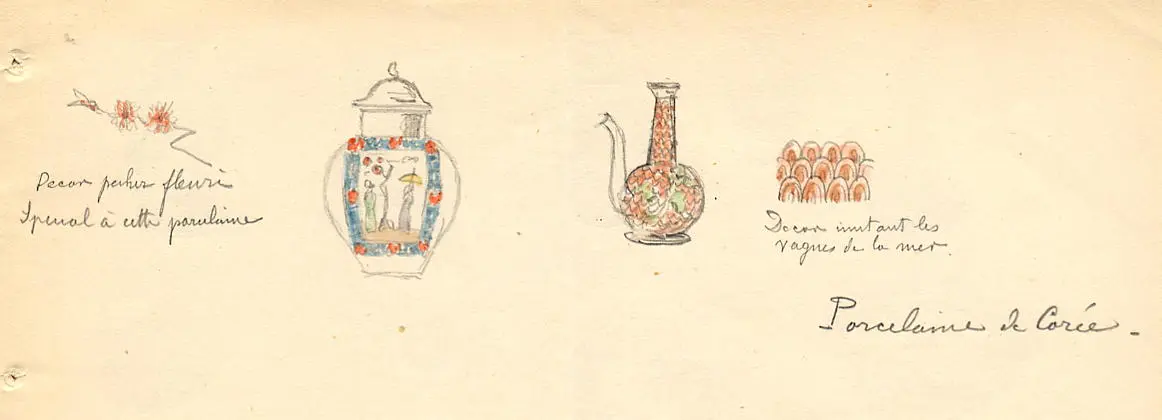 Decor pecher fleuri
Spécial à cette porcelaine
Decor imitant les
vagues de la mer.
Porcelaine de Corée -